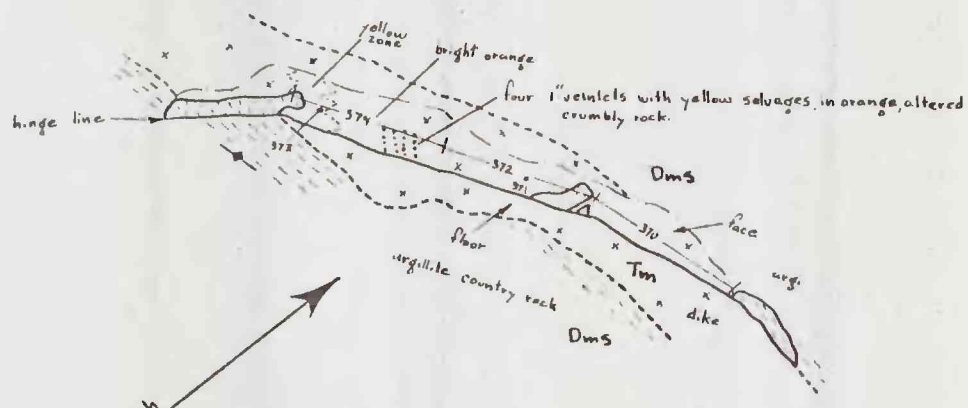 yellow
zone
bright orange
four 1" veinlets with yellow selvages, in orange, altered
crumbly rock.
hinge line
374
373
372
371
Dms
face
370
floor
argillite country rock
Tm
argi.
dike
Dms
N